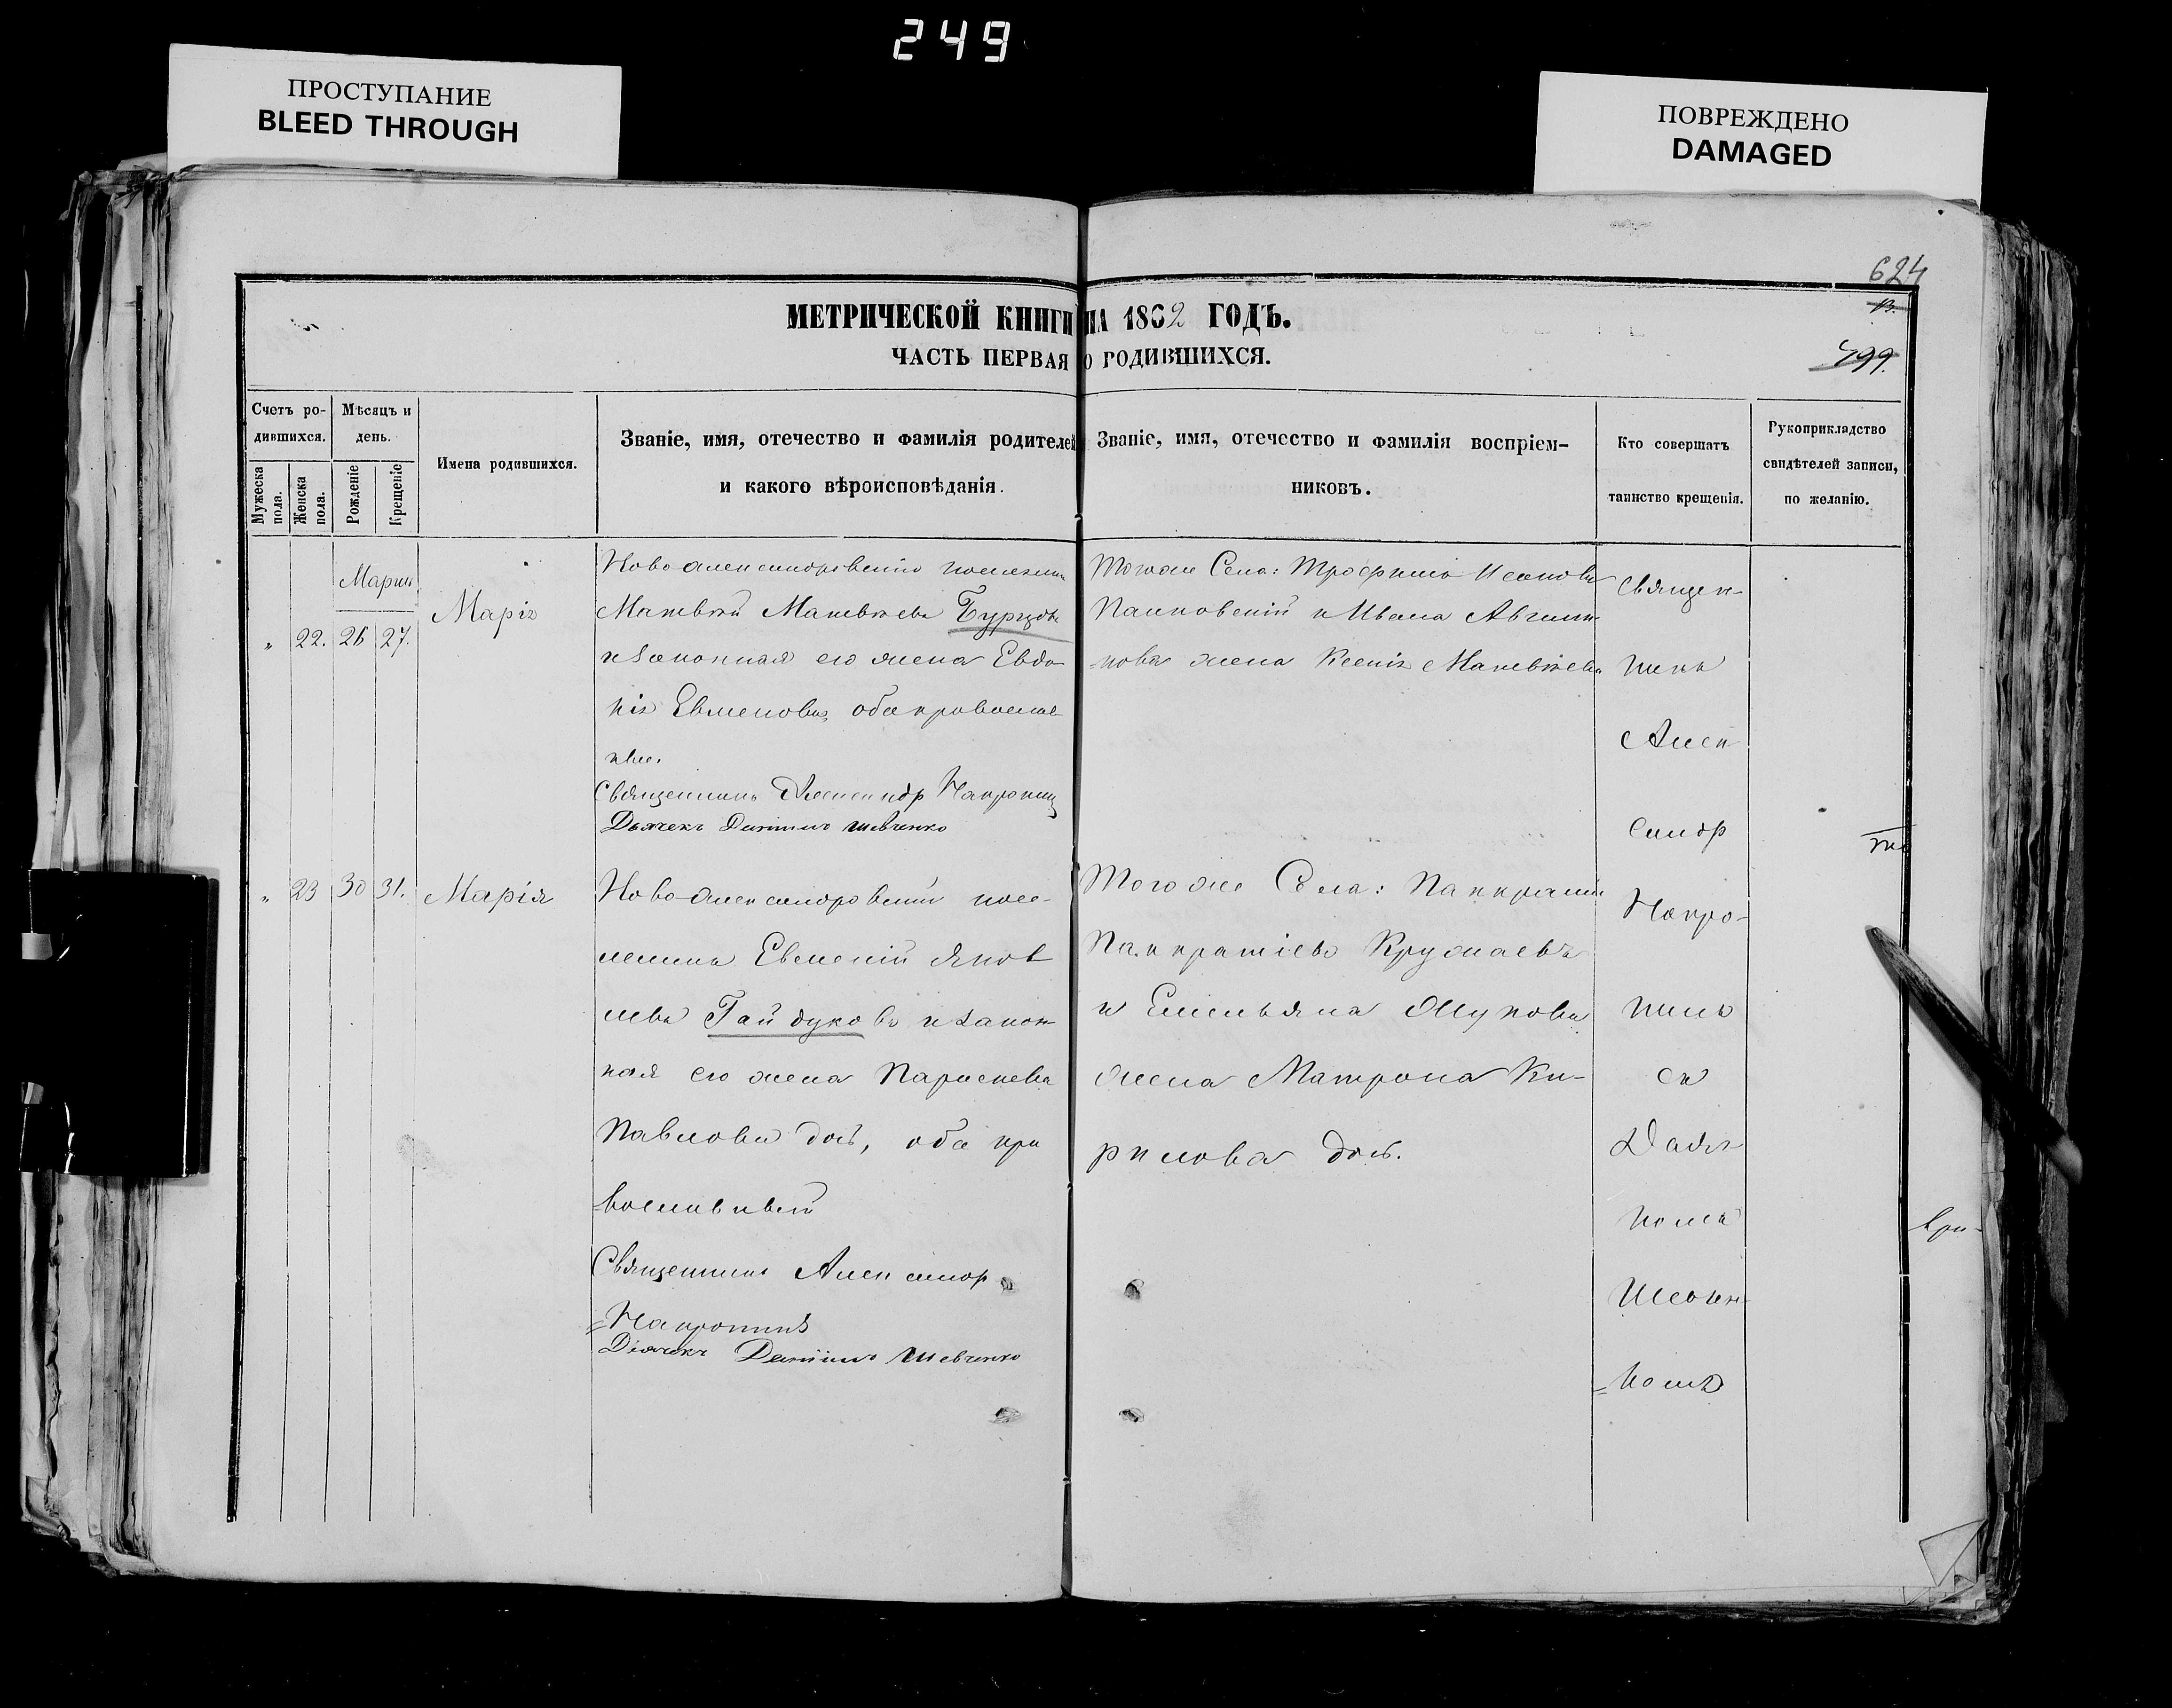 249
ПРОСТУПАНИЕ
BLEED THROUGH
ПОВРЕЖДЕНО
DAMAGED
624
13.
499.
МЕТРИЧЕСКОЙ КНИГИ НА 1862 ГОДЪ.
ЧАСТЬ ПЕРВАЯ О РОДИВШИХСЯ.
Счетъ ро-
дившихся.
Мужеска
пола.
Женска
пола.
Мѣсяцъ и
день.
Рожденіе
Крещеніе
Имена родившихся.
Званіе, имя, отечество и фамилія родителей
и какого вѣроисповѣданія.
Званіе, имя, отечество и фамилія воспріем-
никовъ.
Кто совершатъ
таинство крещенія.
Рукоприкладство
свидѣтелей записи,
по желанію.
Мартъ
„ 22. 26 27.
Марія
Ново александровскій поселянинъ
Матвѣй Матвѣевъ Бурцовъ
и законная его жена Евдо-
кія Евменова, оба православ-
ные.
Священникъ Александр
Дьячекъ Даніилъ Шевченко
Тогоже Села: Трофимъ
и Ивана
жена Ксенія Матвѣева
„ 23 30 31.
Марія
Ново александровскій посе-
лянинъ Евменій Яков
левъ Гайдуковъ и закон-
ная его жена Параскева
Павлова доч., оба пра
вославный
Священникъ Александр
Дьячекъ Даніилъ Шевченко
Тогоже Села: Панкратій
Панкратіевъ
и Емельяна
жена Матрона Ки-
рилова доч.
Священ-
никъ
Алек
сандр
съ
Дьяч-
комъ